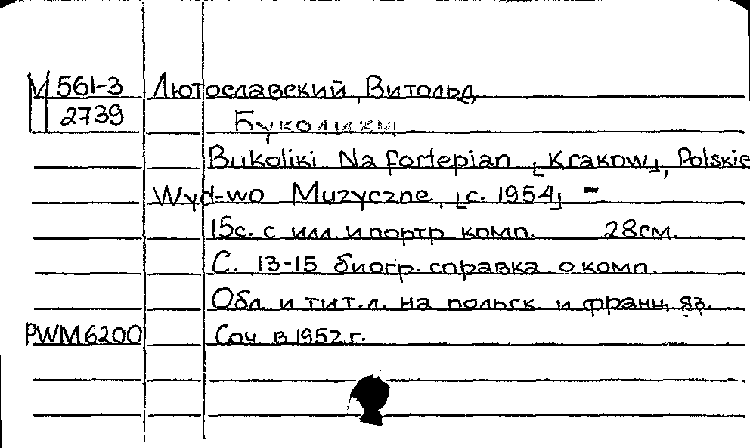 М 561-3 Лютославский, Витольд
2739 Буколики
Bukoliki Na fortepian [Krakow], Polskie
Wyd-wo Muzyczne, [c. 1954] -
15с. с илл и портр комп. 28см.
С. 13-15 биогр. справка о комп.
Обл и тит.л. на польск и франц яз.
PWM 6200 Соч в 1952 г.